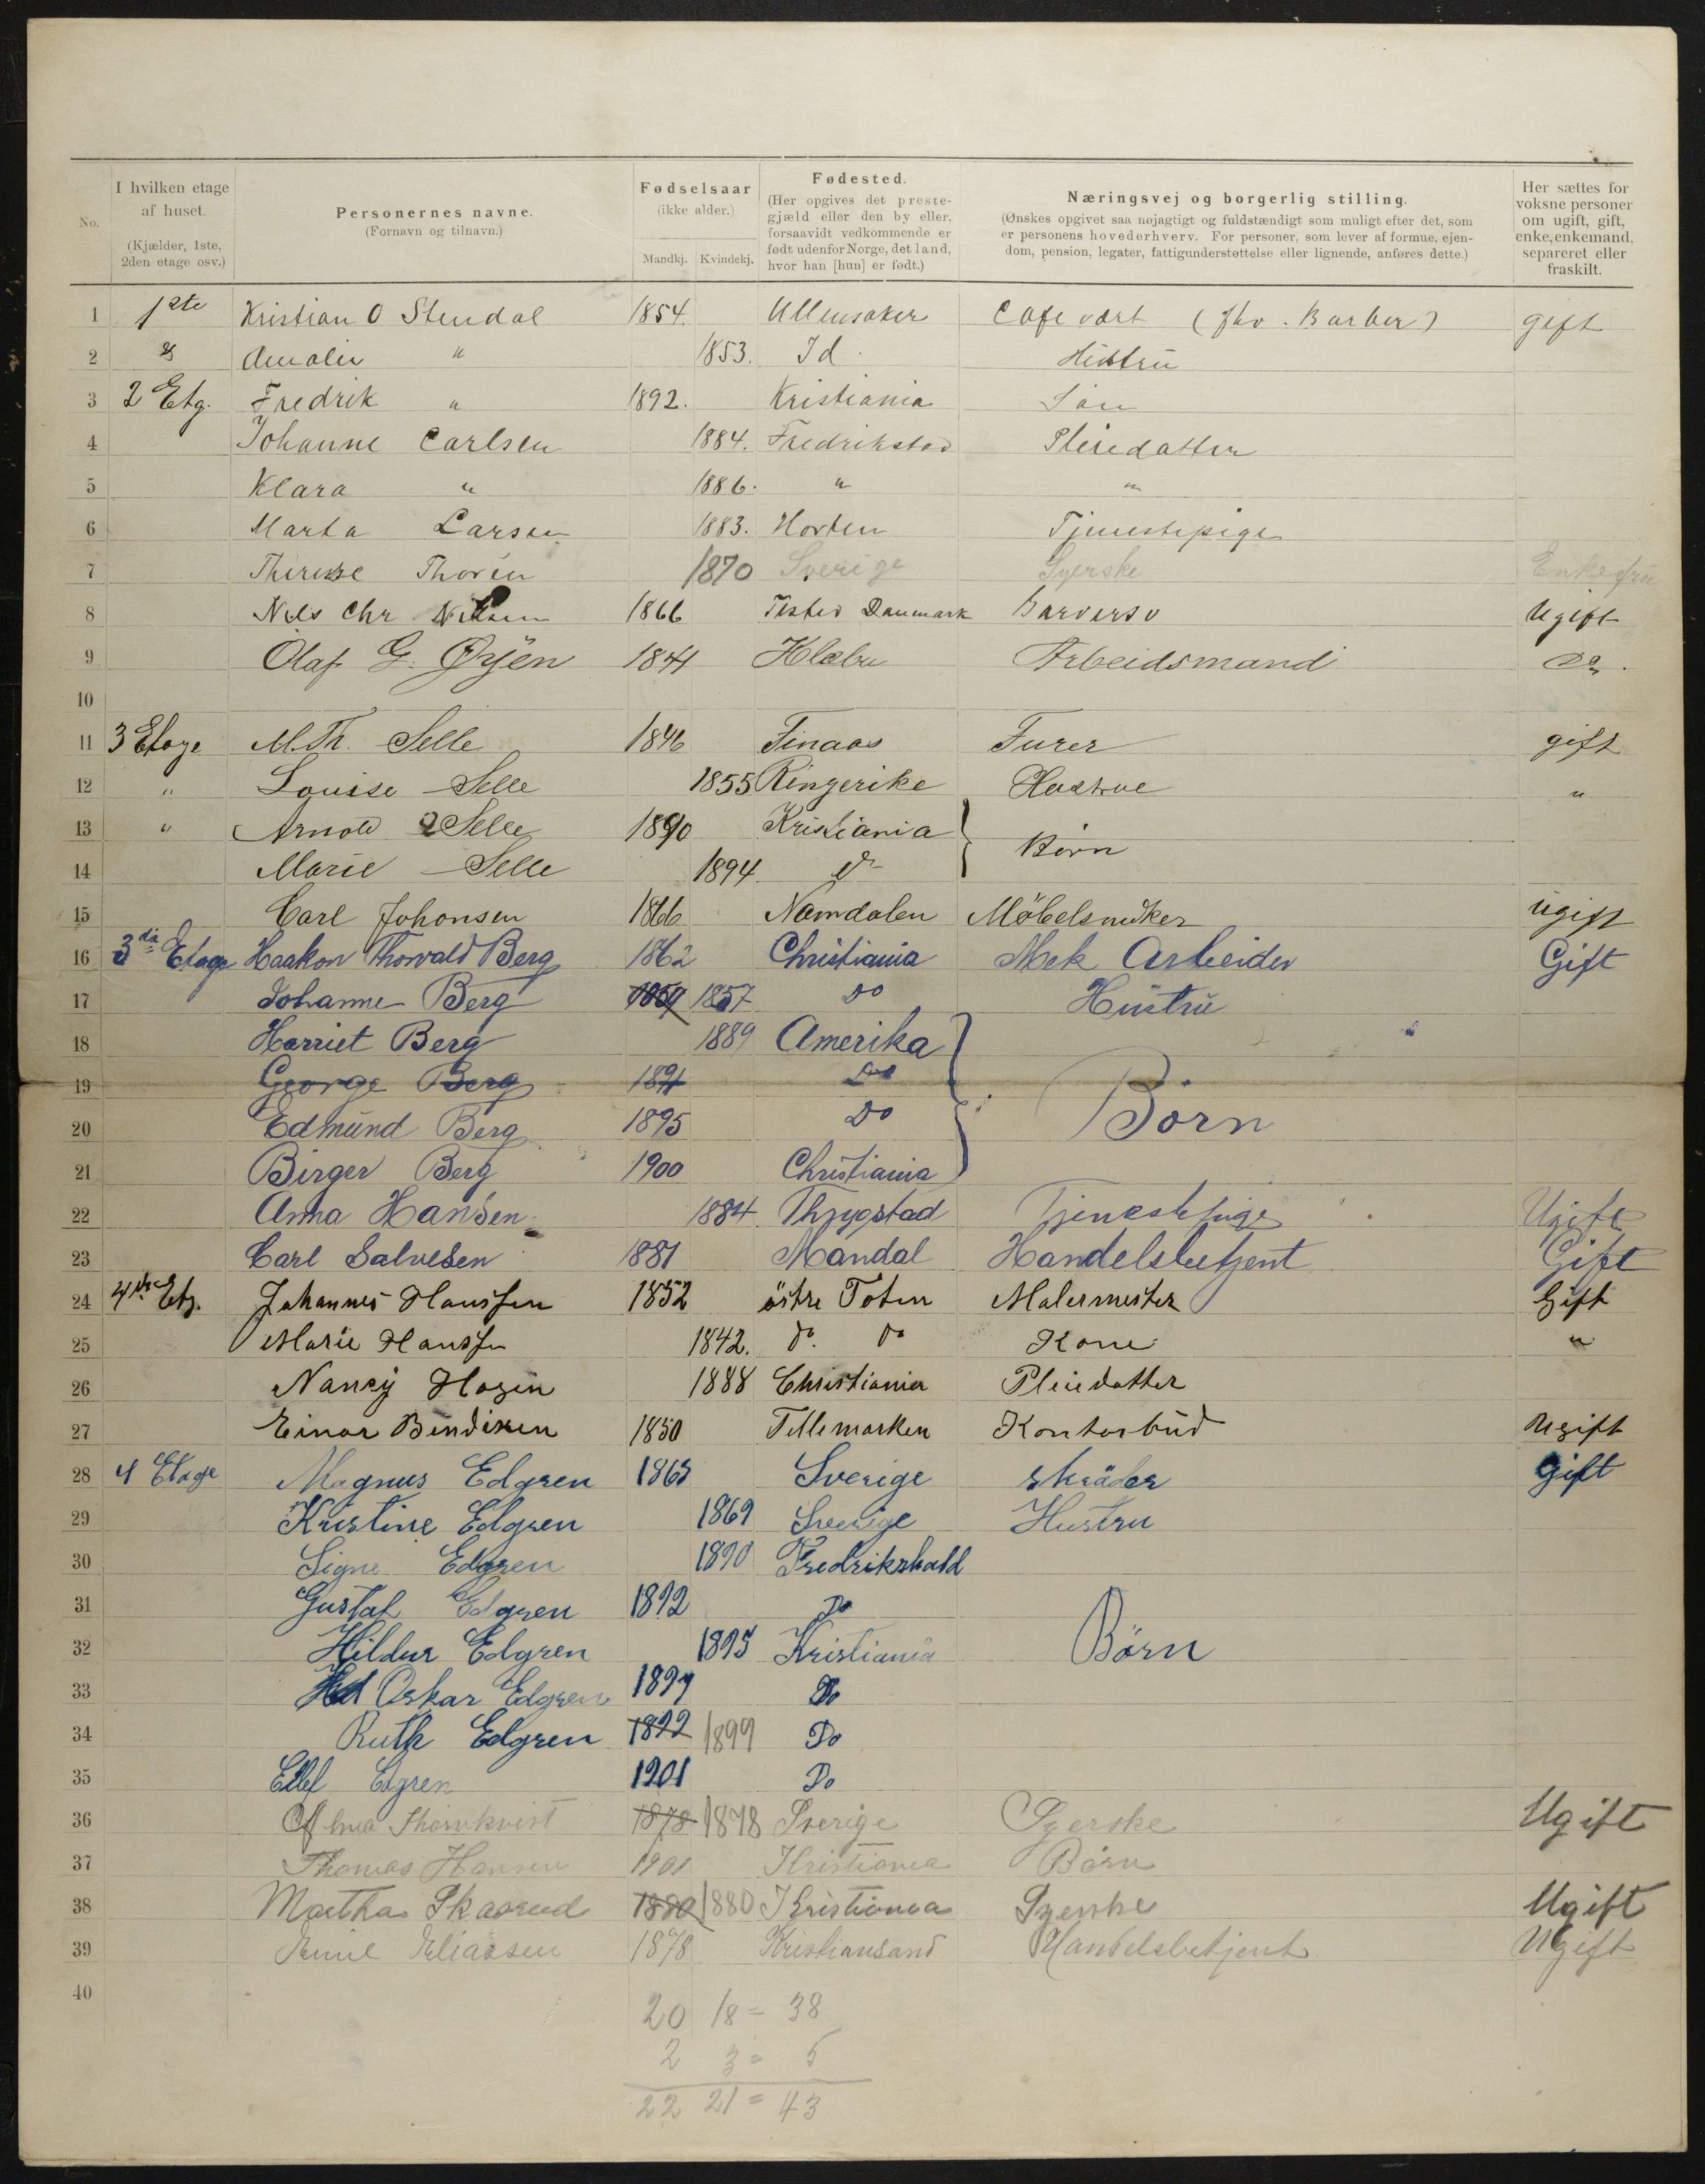 No.
I hvilken etage af huset. (Kjælder, 1ste, 2den etage osv.)
Personernes navne. (Fornavn og tilnavn.)
Fødselsaar (ikke alder.) Mandkj. Kvindekj.
Fødested. (Her opgives det prestegjæld eller den by eller, forsaavidt vedkommende er født udenfor Norge, det land, hvor han [hun] er født.)
Næringsvej og borgerlig stilling. (Ønskes opgivet saa nøjagtigt og fuldstændigt som muligt efter det, som er personens hovederhverv. For personer, som lever af formue, ejendom, pension, legater, fattigunderstøttelse eller lignende, anføres dette.)
Her sættes for voksne personer om ugift, gift, enke, enkemand, separeret eller fraskilt.
1 1ste Kristian O Stendal 1854. Ullensaker Cafevært (fhv. Barber) gift
2 Amalie " 1853. Id Hustru
3 2 Etg. Fredrik " 1892. Kristiania Søn
4 Johanne Carlsen 1884. Fredrikstad Pleiedatter
5 Klara " 1886. " "
6 Marta Larsen 1883. Horten Tjenestepige
7 Therese Thorén 1870 Sverige Syerske Enkefru
8 Nils Chr Nilsen 1866 Tisted Danmark Ugift
9 Olaf G. Øyen 1841 Klæbu Arbeidsmand do.
10
11 3 Etage M. Th. Selle 1846 Finaas Furer gift
12 " Louise Selle 1855 Ringerike Hustrue "
13 " Arnold Selle 1890 Kristiania } Børn
14 Marie Selle 1894 do
15 Carl Johonsen 1866 Namdalen Möbelsnedker ugift
16 3die Etage Haakon Thorvald Berg 1862 Christiania Mek Arbeider Gift
17 Johanne Berg 1857 Do Hustru
18 Harriet Berg 1889 Amerika } Börn
19 George Berg 1891 Do
20 Edmund Berg 1895 Do
21 Birger Berg 1900 Christiania
22 Anna Hansen 1884 Thrygstad Tjenestepige Ugift
23 Carl Salvesen 1881 Mandal Handelsbetjent Gift
24 4de Etg. Johannes Hanssen 1852 östre Toten Malermester Gift
25 Marie Hanssen 1842. do. do Kone "
26 Nancy Hagen 1888 Christiania Pleiedatter
27 Einar Bendixen 1850 Tellemarken Kontorbud Ugift
28 4 Etage Magnus Edgren 1865 Sverige skräder gift
29 Kristine Edgren 1869 Sverige Hustru
30 Signe Edgren 1890 Fredrikshald
31 Gustaf Edgren 1892 Do
32 Hildur Edgren 1895 Kristiania Børn
33 Oskar Edgren 1897 Do
34 Ruth Edgren 1899 1899 Do
35 Ellef Edgren 1901 Do
36 Thornkvist 1878 1878 Sverige Syerske Ugift
37 Thomas Hansen 1901 Kristiania Børn
38 Martha Skaarud 1880 1880 Kristiania Syerske Ugift
39 Emil Eliassen 1878 Kristiansand Handelsbetjent Ugift
40
20 18 = 38
2 3 = 5
22 21 = 43